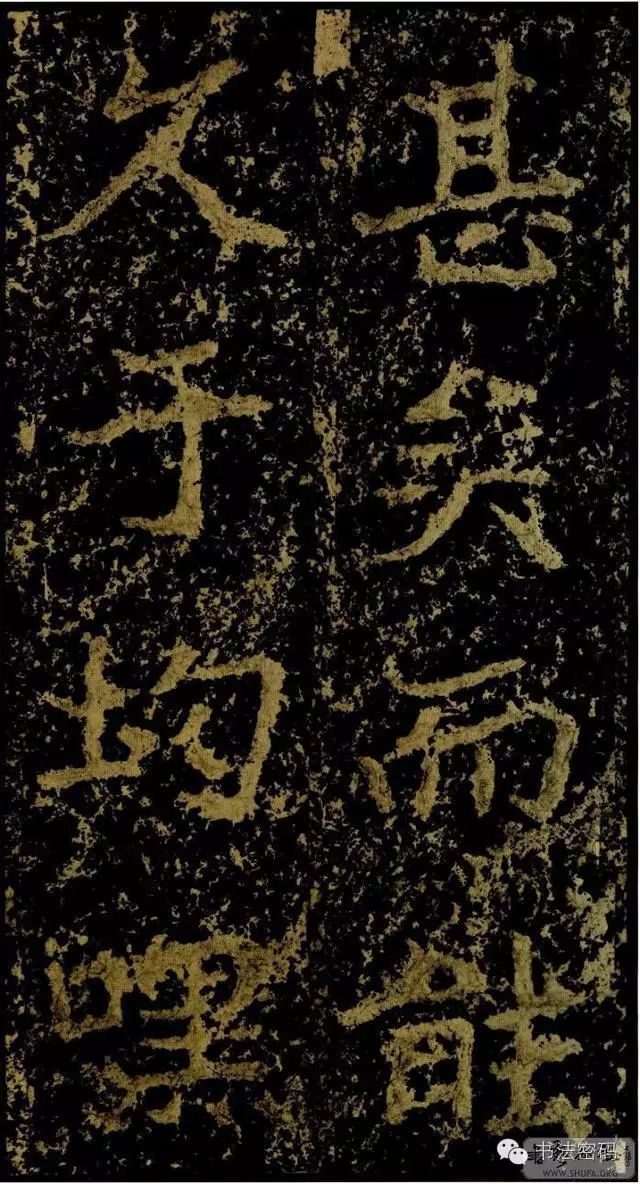 甚矣而能
久于均嘿
书法密码
WWW.SHUFA.ORG